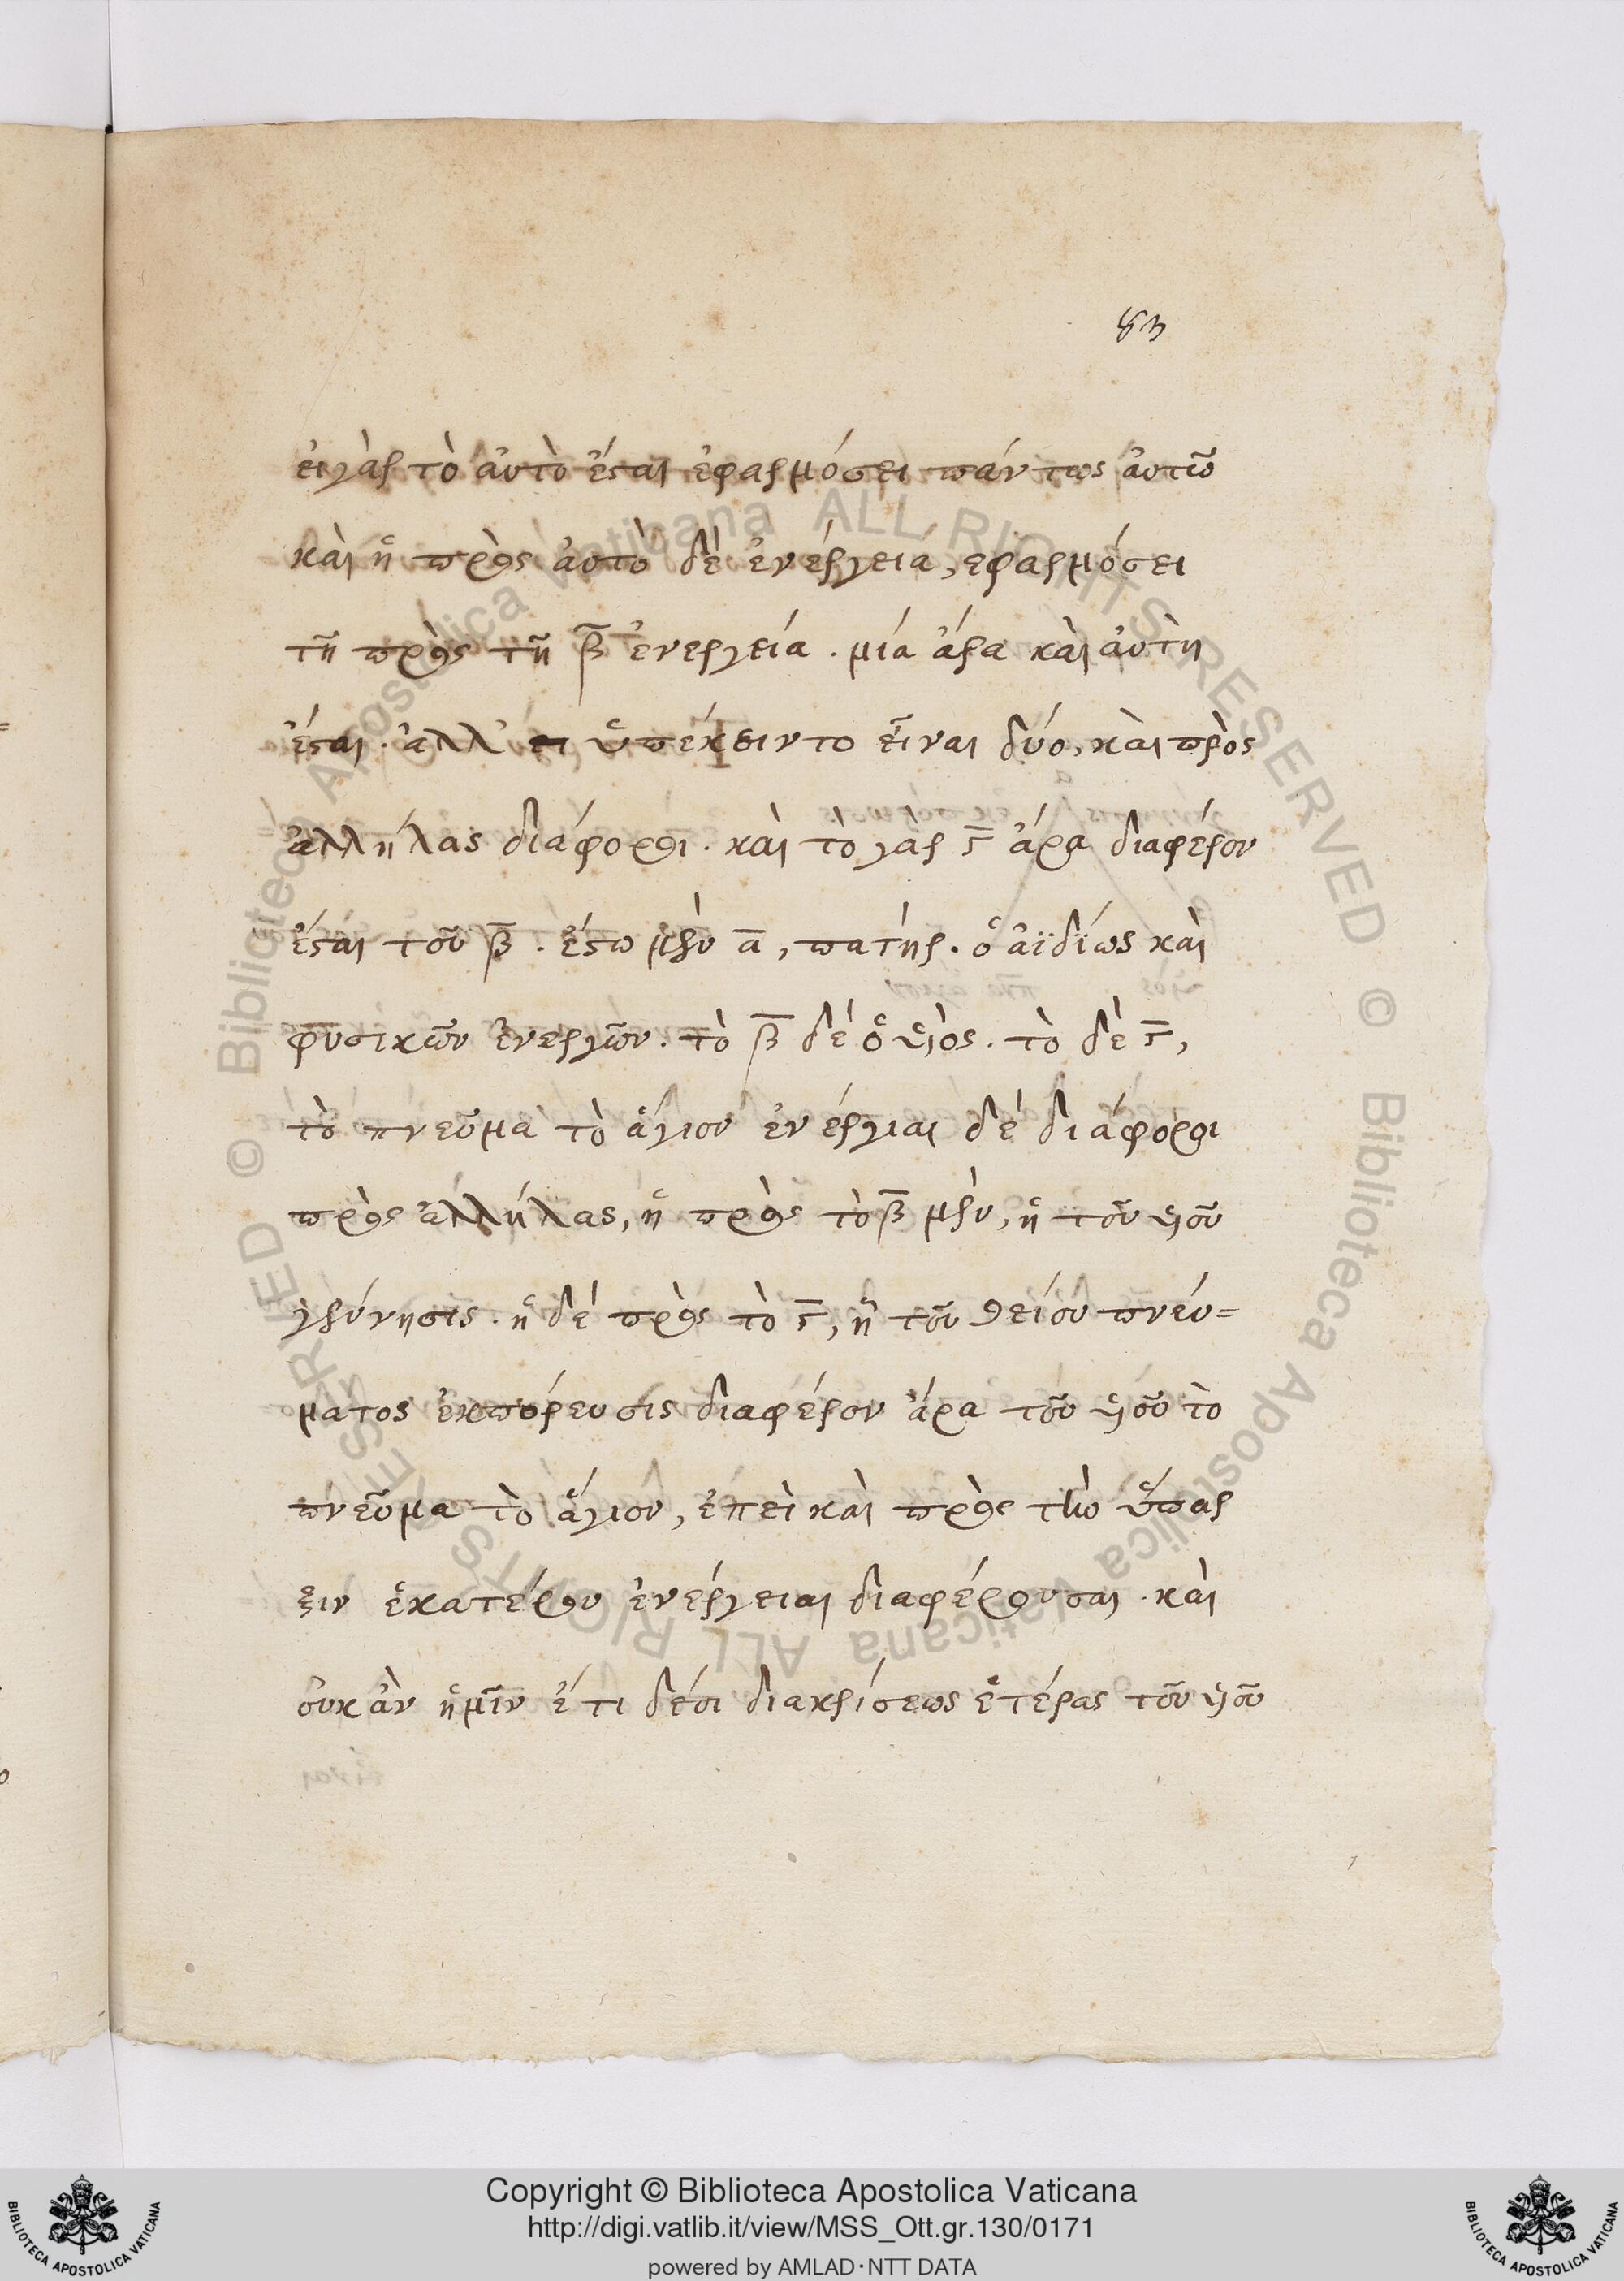 83
εἰ γὰρ τὸ αὐτὸ ἔσται ἐφαρμόσει πάντως αὐτῶ
καὶ ἡ πρὸς αὐτὸ δὲ ἐνέργεια, εφαρμόσει
τῆ πρὸς τῆ β̅ ἐνεργεία. μία ἄρα καὶ αὐτὴ
ἔσται. ἀλλ' ει ὑπέκειντο εἶναι δύο, καὶ πρὸς
ἀλλήλας διάφοροι. καὶ τὸ γὰρ γ̅ ἄρα διαφέρον
ἔσται τοῦ β̅. ἔστω μὲν α̅, πατήρ. ὁ ἀϊδίως καὶ
φυσικῶν ἐνεργῶν. τὸ β̅ δὲ ὁ υἱὸς. τὸ δὲ γ̅,
τὸ πνεῦμα τὸ ἅγιον ἐνέργιαι δὲ διάφοροι
πρὸς ἀλλήλας, ἡ πρὸς τὸ β̅ μὲν, ἡ τοῦ υἱοῦ
γέννησις. ἡ δὲ πρὸς τὸ γ̅, ἡ τοῦ θείου πνεύ=
ματος ἐκπόρευσις διαφέρον ἄρα τοῦ υἱοῦ τὸ
πνεῦμα τὸ ἅγιον, ἐπεὶ καὶ πρὸς τὴν ὕπαρ
ξιν ἑκατέρου ἐνέργειαι διαφέρουσαι. καὶ
οὐκ ἂν ἡμῖν ἔτι δέοι διακρίσεως ἑτέρας τοῦ υἱοῦ
Copyright © Biblioteca Apostolica Vaticana
http://digi.vatlib.it/view/MSS_Ott.gr.130/0171
powered by AMLAD·NTT DATA
BIBLIOTECA APOSTOLICA VATICANA
BIBLIOTECA APOSTOLICA VATICANA
© Biblioteca Apostolica Vaticana ALL RIGHTS RESERVED
© Biblioteca Apostolica Vaticana ALL RIGHTS RESERVED